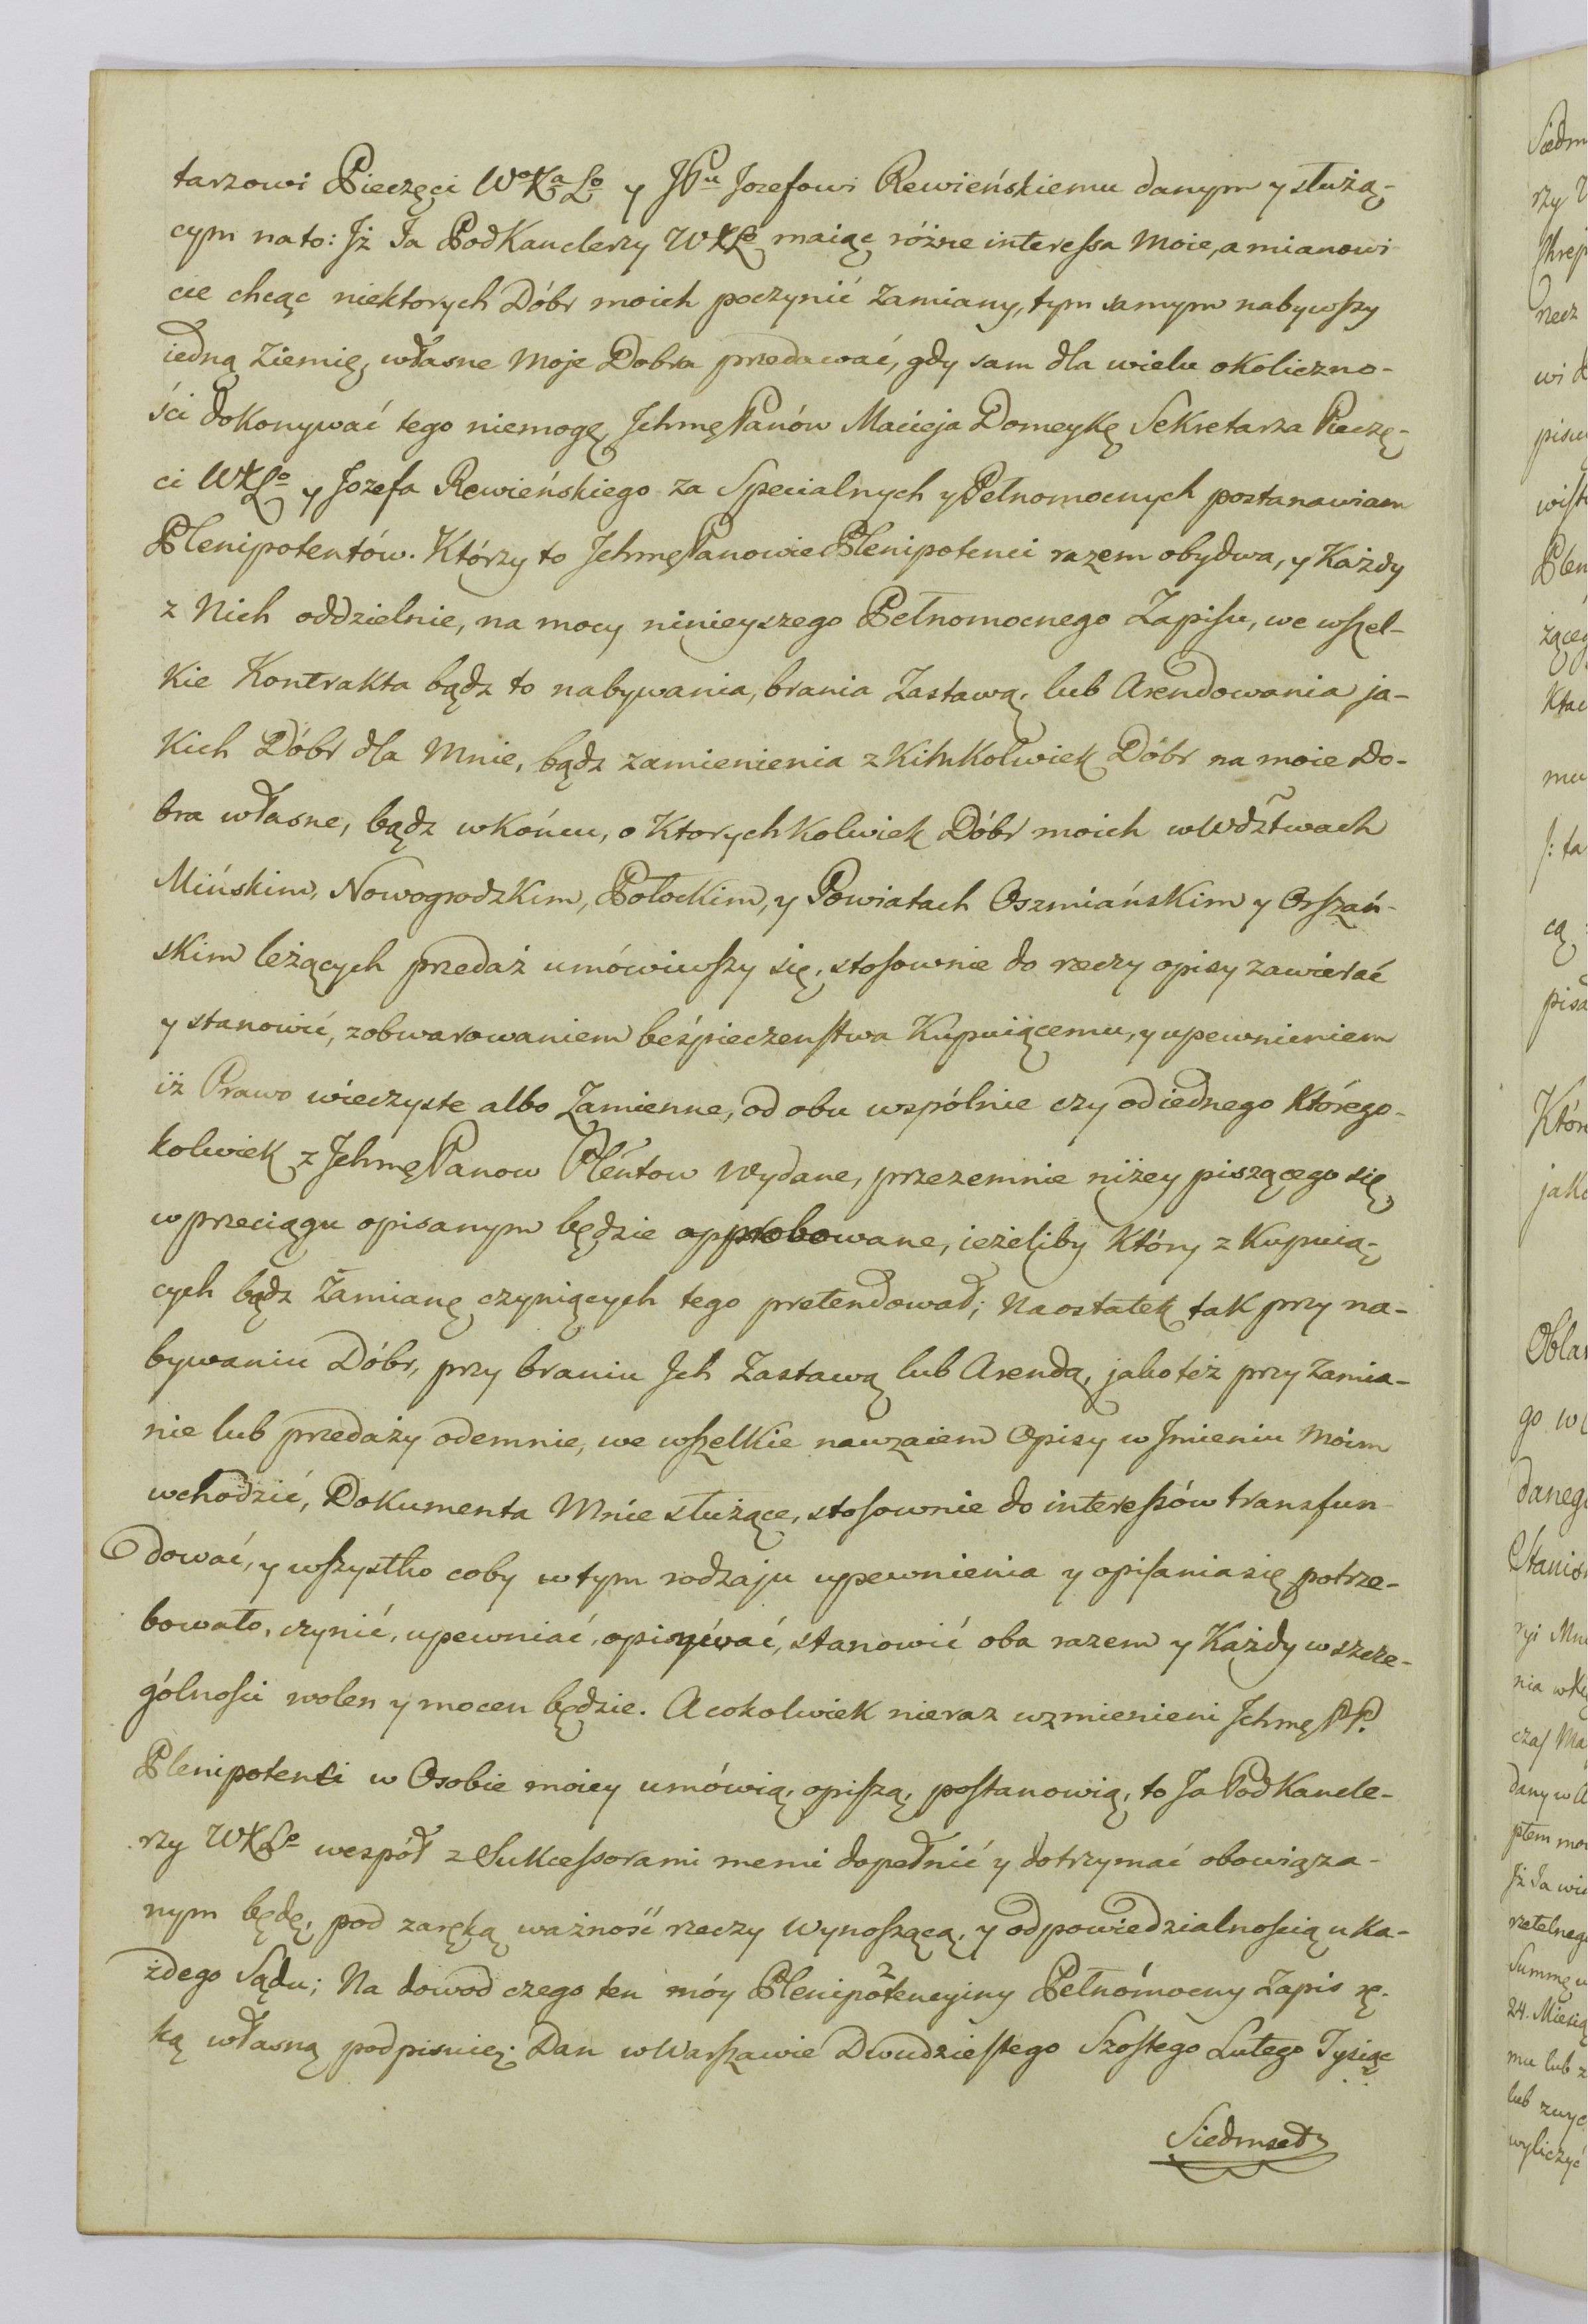 tarzowi Pieczęci Wo Ka Lo y JPu Jozefowi Rewieńskiemu danym y służą-
cym na to: Jż Ja PodKanclerzy WKLo maiąc różne interessa moie, a mianowi
cie chcąc niektorych Dóbr moich poczynić zamiany, tym samym nabywszy
iedną Ziemię, własne moje Dobra przedawać, gdy sam dla wielu okoliczno-
ści dokonywać tego niemogę, Jchmę Panów Macieja Domeykę Sekretarza Pieczę-
ci WKLo y Jozefa Rewieńskiego za Specialnych y Pełnomocnych postanawiam
Plenipotentów. Którzy to Jchmę Panowie Plenipotenci razem obydwa, y Każdy
z Nich oddzielnie, na mocy ninieyszego Pełnomocnego Zapisu, we wszel-
kie Kontrakta bądz to nabywania, brania Zastawą, lub Arendowania ja-
kich Dóbr dla Mnie, bądz zamienienia z kimkolwiek Dóbr na moie Do-
bra własne, bądz w końcu, o ktorychkolwiek Dóbr moich w Wdztwach
Mińskim, Nowogrodzkim, Połockim, y Powiatach Oszmiańskim y Orszań-
skim leżących przedaż umówiwszy się, stosownie do rzeczy opisy zawierać
y stanowić, z obwarowaniem beśpieczenstwa Kupuiącemu, y upewnieniem
iż Prawo wieczyste albo Zamienne, od obu wspólnie czy od iednego którego-
kolwiek z Jchmę Panow Plentow wydane, przezemnie niżey piszącego się,
w przeciągu opisanym będzie approbowane, ieżeliby który z Kupuią-
cych bądz Zamianę czyniących tego pretendował; Naostatek tak przy na-
bywaniu Dóbr, przy braniu Jch Zastawą lub Arendą, jako też przy Zamia-
nie lub przedaży odemnie, we wszelkie nawzaiem Opisy w Jmieniu Moim
wchodzić, Dokumenta Mnie służące, stosownie do interessów transfun-
dować, y wszystko coby w tym rodzaju upewnienia y opisania się potrze-
bowało, czynić, upewniać, opisywać, stanowić oba razem y Każdy w szcze-
gólności wolen y mocen będzie. A cokolwiek nieraz wzmienieni Jchmę PP.
Plenipotenci w Osobie moiey umówią, opiszą, postanowią, to Ja PodKancle-
rzy WKLo wespół z Sukcessorami memi dopełnić y dotrzymać obowiąza-
nym będę, pod zaręką ważność rzeczy wynoszącą, y odpowiedzialnością u Ka-
żdego Sądu; Na dowod czego ten móy Plenipotencyiny Pełnomocny Zapis rę-
ką własną podpisuię. Dan w Warszawie Dwudziestego Szostego Lutego Tysiąc
Siedmset